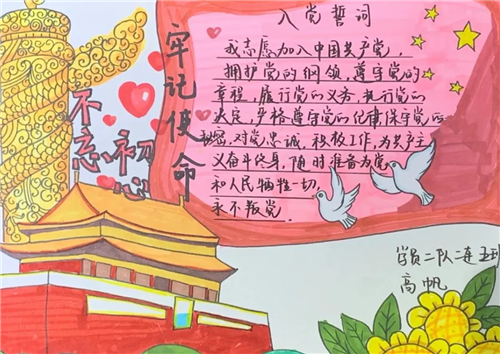 不忘初心
牢记使命
入党誓词
我志愿加入中国共产党,
拥护党的纲领,遵守党的
章程,履行党的义务,执行党的
决定,严格遵守党的纪律保守党的
秘密,对党忠诚,积极工作,为共产主
义奋斗终身,随时准备为党
和人民牺牲一切,
永不叛党.
学员二队二连五班
高帆